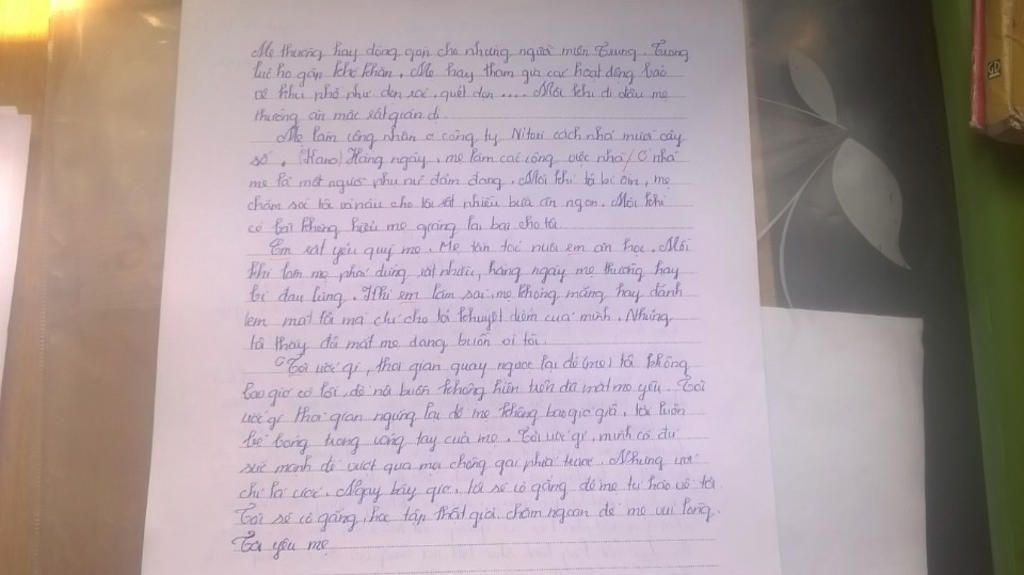 Mẹ thường hay động gọn cho những người miền Trung. Trong
lúc họ gặp khó khăn. Mẹ hay tham gia các hoạt động bảo
vệ khu phố như dọn rác, quét dọn .... Mỗi khi đi đâu mẹ
thường ăn mặc rất giản dị.
Mẹ làm công nhân ở công ty Nitori cách nhà mười cây
số. Hàng ngày, mẹ làm các công việc nhà / Ở nhà
mẹ là một người phụ nữ đảm đang. Mỗi khi tôi bị ốm, mẹ
chăm sóc tôi và nấu cho tôi rất nhiều bữa ăn ngon. Mỗi khi
có bài không hiểu mẹ giảng lại bài cho tôi.
Em rất yêu quý mẹ. Mẹ tần tảo nuôi em ăn học. Mỗi
khi làm mẹ phải đứng rất nhiều, hàng ngày mẹ thường hay
bị đau lưng. Khi em làm sai, mẹ không mắng hay đánh
em mà chỉ cho tôi khuyết điểm của mình. Nhưng
tôi thấy đôi mắt mẹ đang buồn vì tôi.
"Tôi ước gì, thời gian quay ngược lại để (mẹ) tôi không
bao giờ có lỗi, để nỗi buồn không hiện trên đôi mắt mẹ yêu. Tôi
ước gì thời gian ngừng lại để mẹ không bao giờ già, tôi luôn
bé bỏng trong vòng tay của mẹ. Tôi ước gì, mình có đủ
sức mạnh để vượt qua mọi chông gai phía trước. Nhưng ước
chỉ là ước. Ngay bây giờ, tôi sẽ cố gắng để mẹ tự hào về tôi.
Tôi sẽ cố gắng, học tập thật giỏi, chăm ngoan để mẹ vui lòng.
Tôi yêu mẹ